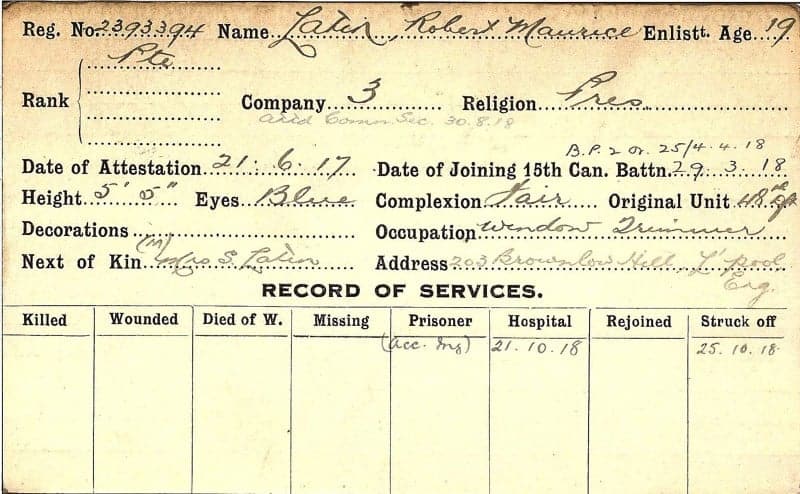 Reg. No. 2393394 Name Latin, Robert Maurice Enlistt. Age 19
Pte
Rank Company 3 Religion Pres.
Comm Sec. 30.8.18
B.P. 2 Or. 25/4.4.18
Date of Attestation 21.6.17 Date of Joining 15th Can. Battn. 29.3.18
Height 5' 5" Eyes Blue Complexion Fair Original Unit 48th
Decorations Occupation Window Trimmer
Next of Kin (M) Mrs S. Latin Address 203 Brownlow Hill, L'pool
Eng.
RECORD OF SERVICES.
Killed Wounded Died of W. Missing Prisoner Hospital Rejoined Struck off
(Acc. Inj) 21.10.18 25.10.18